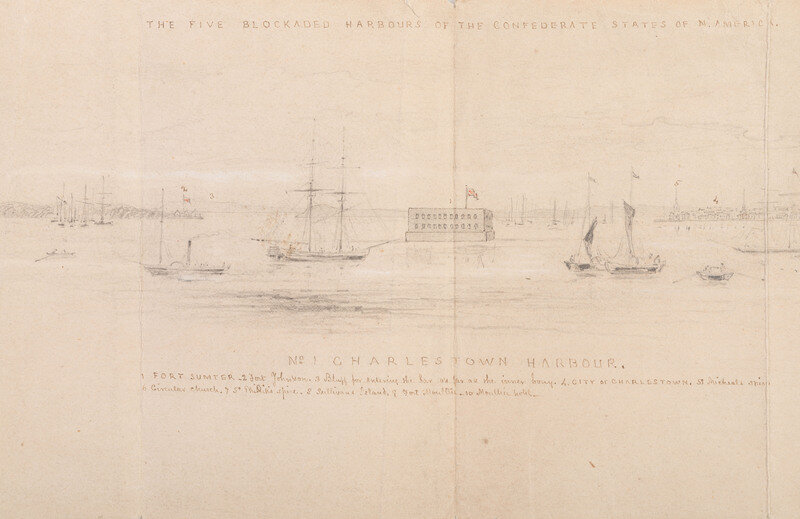 THE FIVE BLOCKADED HARBOURS OF THE CONFEDERATE STATES OF N. AMERICA.
2
3
5
4
No 1 CHARLESTOWN HARBOUR.
1 FORT SUMTER. 2 Fort Johnson. 3 Bluff for entering the bar as far as the inner buoy. 4. CITY OF CHARLESTOWN. 5 St Michaels spire
6 Circular church. 7 St Philip's spire. 8 Sullivans Island. 9 Fort Moultrie. 10 Moultrie